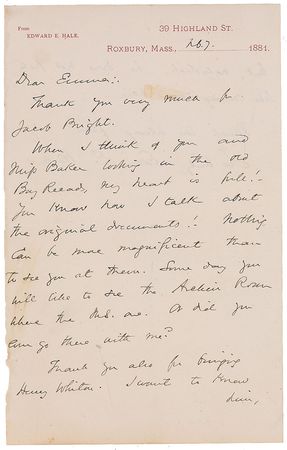 From
EDWARD E. HALE.
39 HIGHLAND ST.
ROXBURY, MASS., Feb 7. 1881.
Dear Emma:
Thank you very much for
Jacob Bright.
When I think of you and
Miss Baker looking in the old
Bay Records, my heart is full!
You know how I talk about
the original documents! Nothing
can be more magnificent than
to see you at them. Some day you
will like to see the Archive Room
where the MS. are. Or did you
ever go there with me?
Thank you also for bringing
Henry Whiton. I want to know
him,